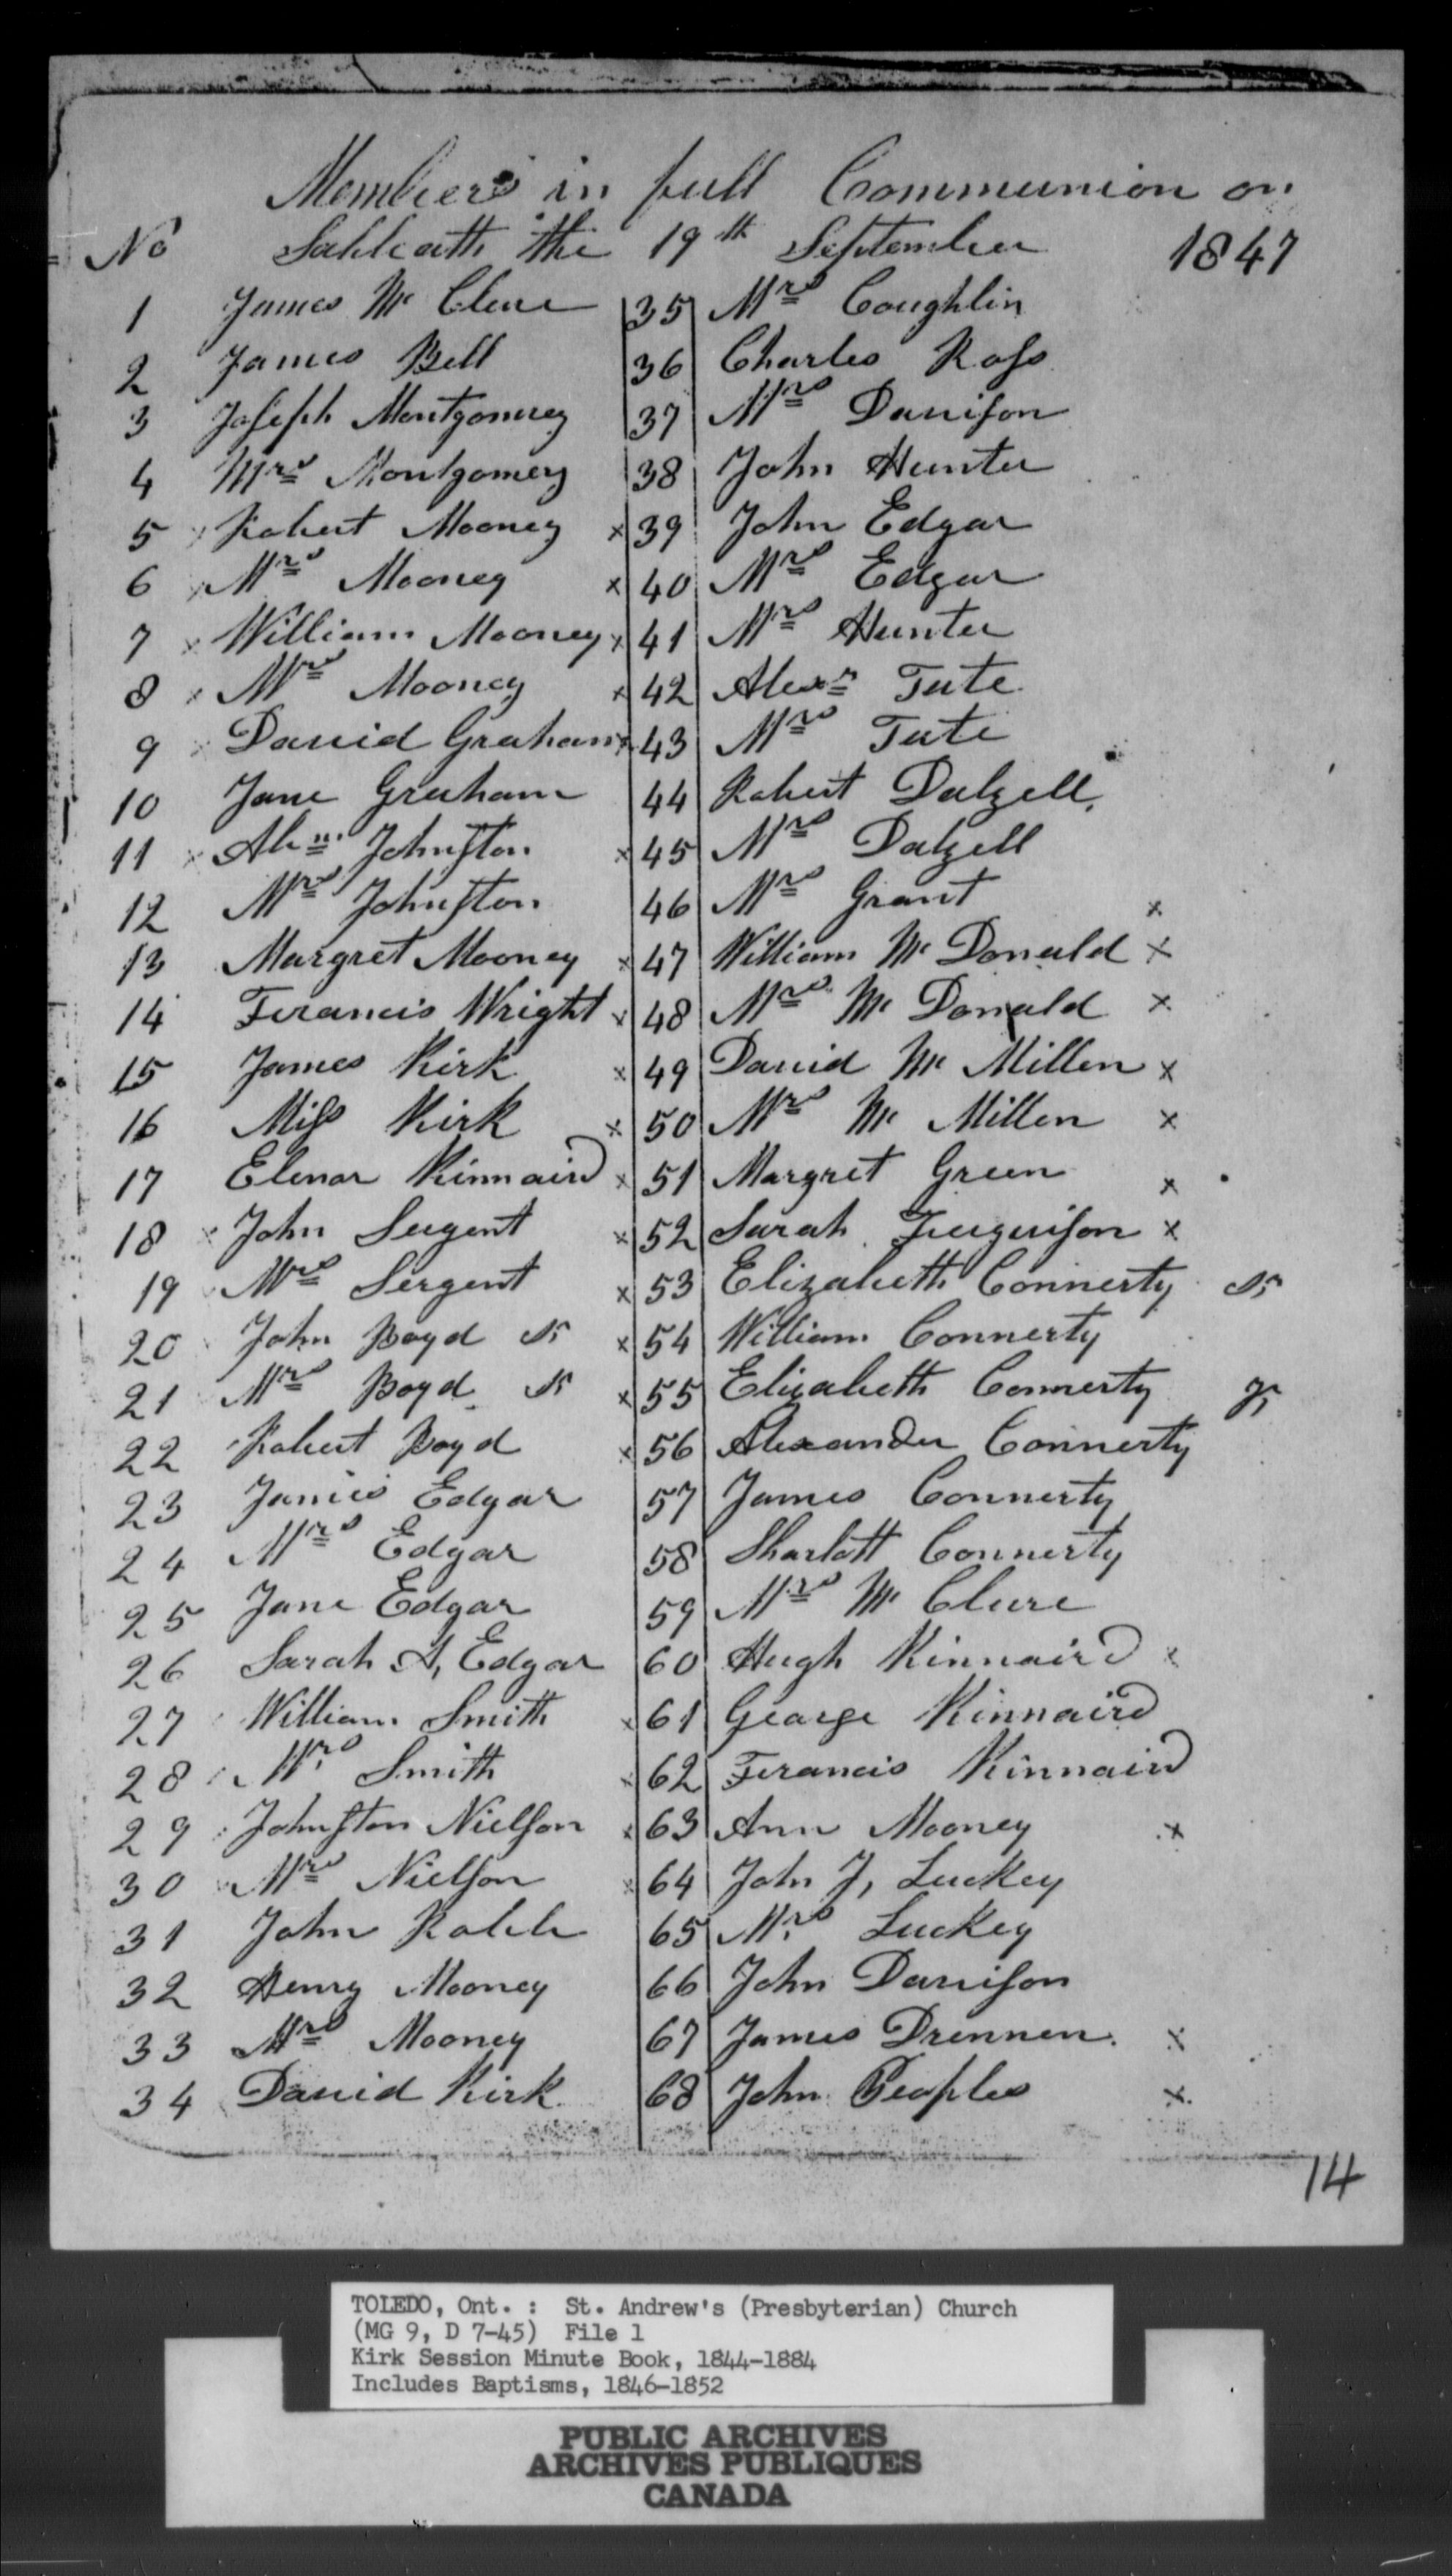 Members in full Communion on
No Sabbath the 19th September 1847
1 James Mc Clure
2 James Bell
3 Joseph Montgomrey
4 Mrs Montgomery
5 x Robert Mooney x
6 x Mrs Mooney x
7 x William Mooney x
8 x Mrs Mooney x
9 x David Graham x
10 Jane Graham
11 x Alexr Johnston x
12 Mrs Johnston
13 Margret Mooney x
14 Francis Wright x
15 James Kirk x
16 Miss Kirk x
17 Elenor Kinnaird x
18 x John Sergent x
19 Mrs Sergent x
20 John Boyd Sr x
21 Mrs Boyd Sr x
22 Robert Boyd x
23 James Edgar
24 Mrs Edgar
25 Jane Edgar
26 Sarah A, Edgar
27 William Smith x
28 Mrs Smith x
29 Johnston Nielson x
30 Mrs Nielson x
31 John Robb
32 Henry Mooney
33 Mrs Mooney
34 David Kirk
35 Mrs Coughlin
36 Charles Ross
37 Mrs Davison
38 John Hunter
39 John Edgar
40 Mrs Edgar
41 Mrs Hunter
42 Alexr Tate
43 Mrs Tate
44 Robert Dalzell
45 Mrs Dalzell
46 Mrs Grant x
47 William Mc Donald x
48 Mrs Mc Donald x
49 David Mc Millen x
50 Mrs Mc Millen x
51 Margret Green x
52 Sarah Furguison x
53 Elizabeth Connerty Sr
54 William Connerty
55 Elizabeth Connerty Jr
56 Alexander Connerty
57 James Connerty
58 Sharlott Connerty
59 Mrs Mc Clure
60 Hugh Kinnaird x
61 George Kinnaird
62 Francis Kinnaird
63 Ann Mooney x
64 John J, Luckey
65 Mrs Luckey
66 John Davison
67 James Drennen x
68 John Peoples x
14
TOLEDO, Ont. : St. Andrew's (Presbyterian) Church
(MG 9, D 7-45) File 1
Kirk Session Minute Book, 1844-1884
Includes Baptisms, 1846-1852
PUBLIC ARCHIVES
ARCHIVES PUBLIQUES
CANADA